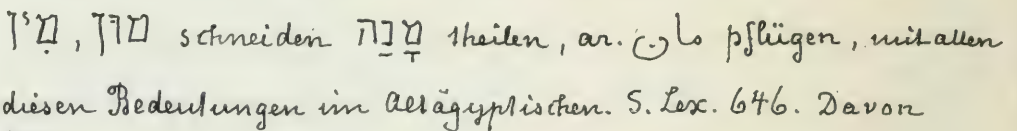 מִין, מון schneiden מָנַה theilen, ar. مان pflügen, mit allen
diesen Bedeutungen im Altägyptischen. S. Lex. 646. Davon